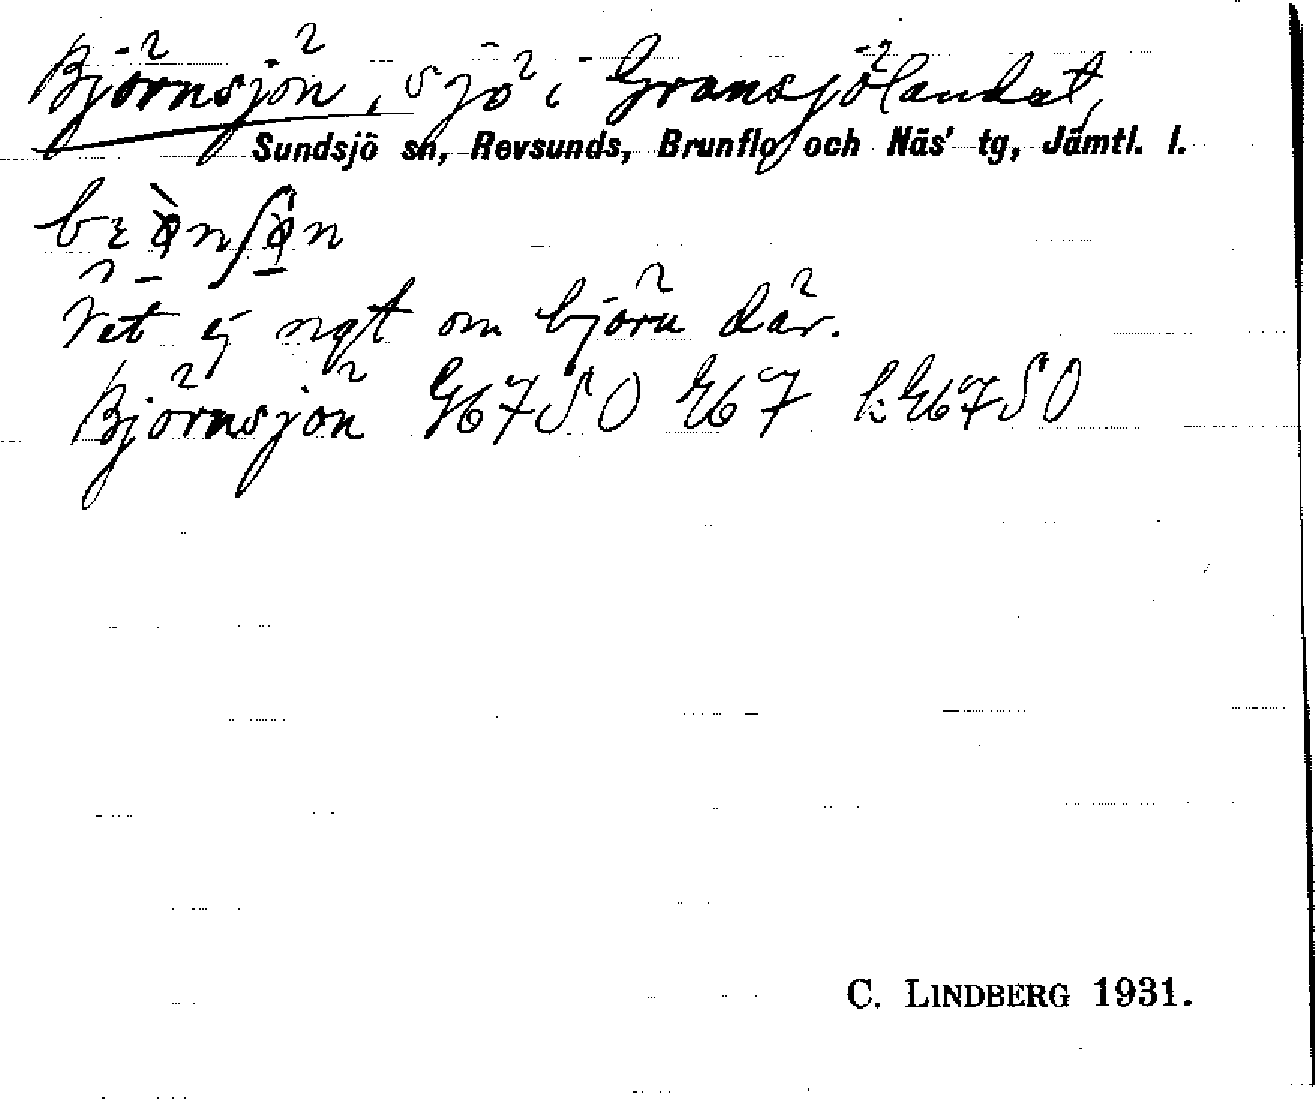 Björnsjön, sjö i Gransjölandet,
Sundsjö sn, Revsunds, Brunflo och Näs' tg, Jämtl. l.
Vet ej ngt om björn där.
Björnsjön G67SO
C. LINDBERG 1931.